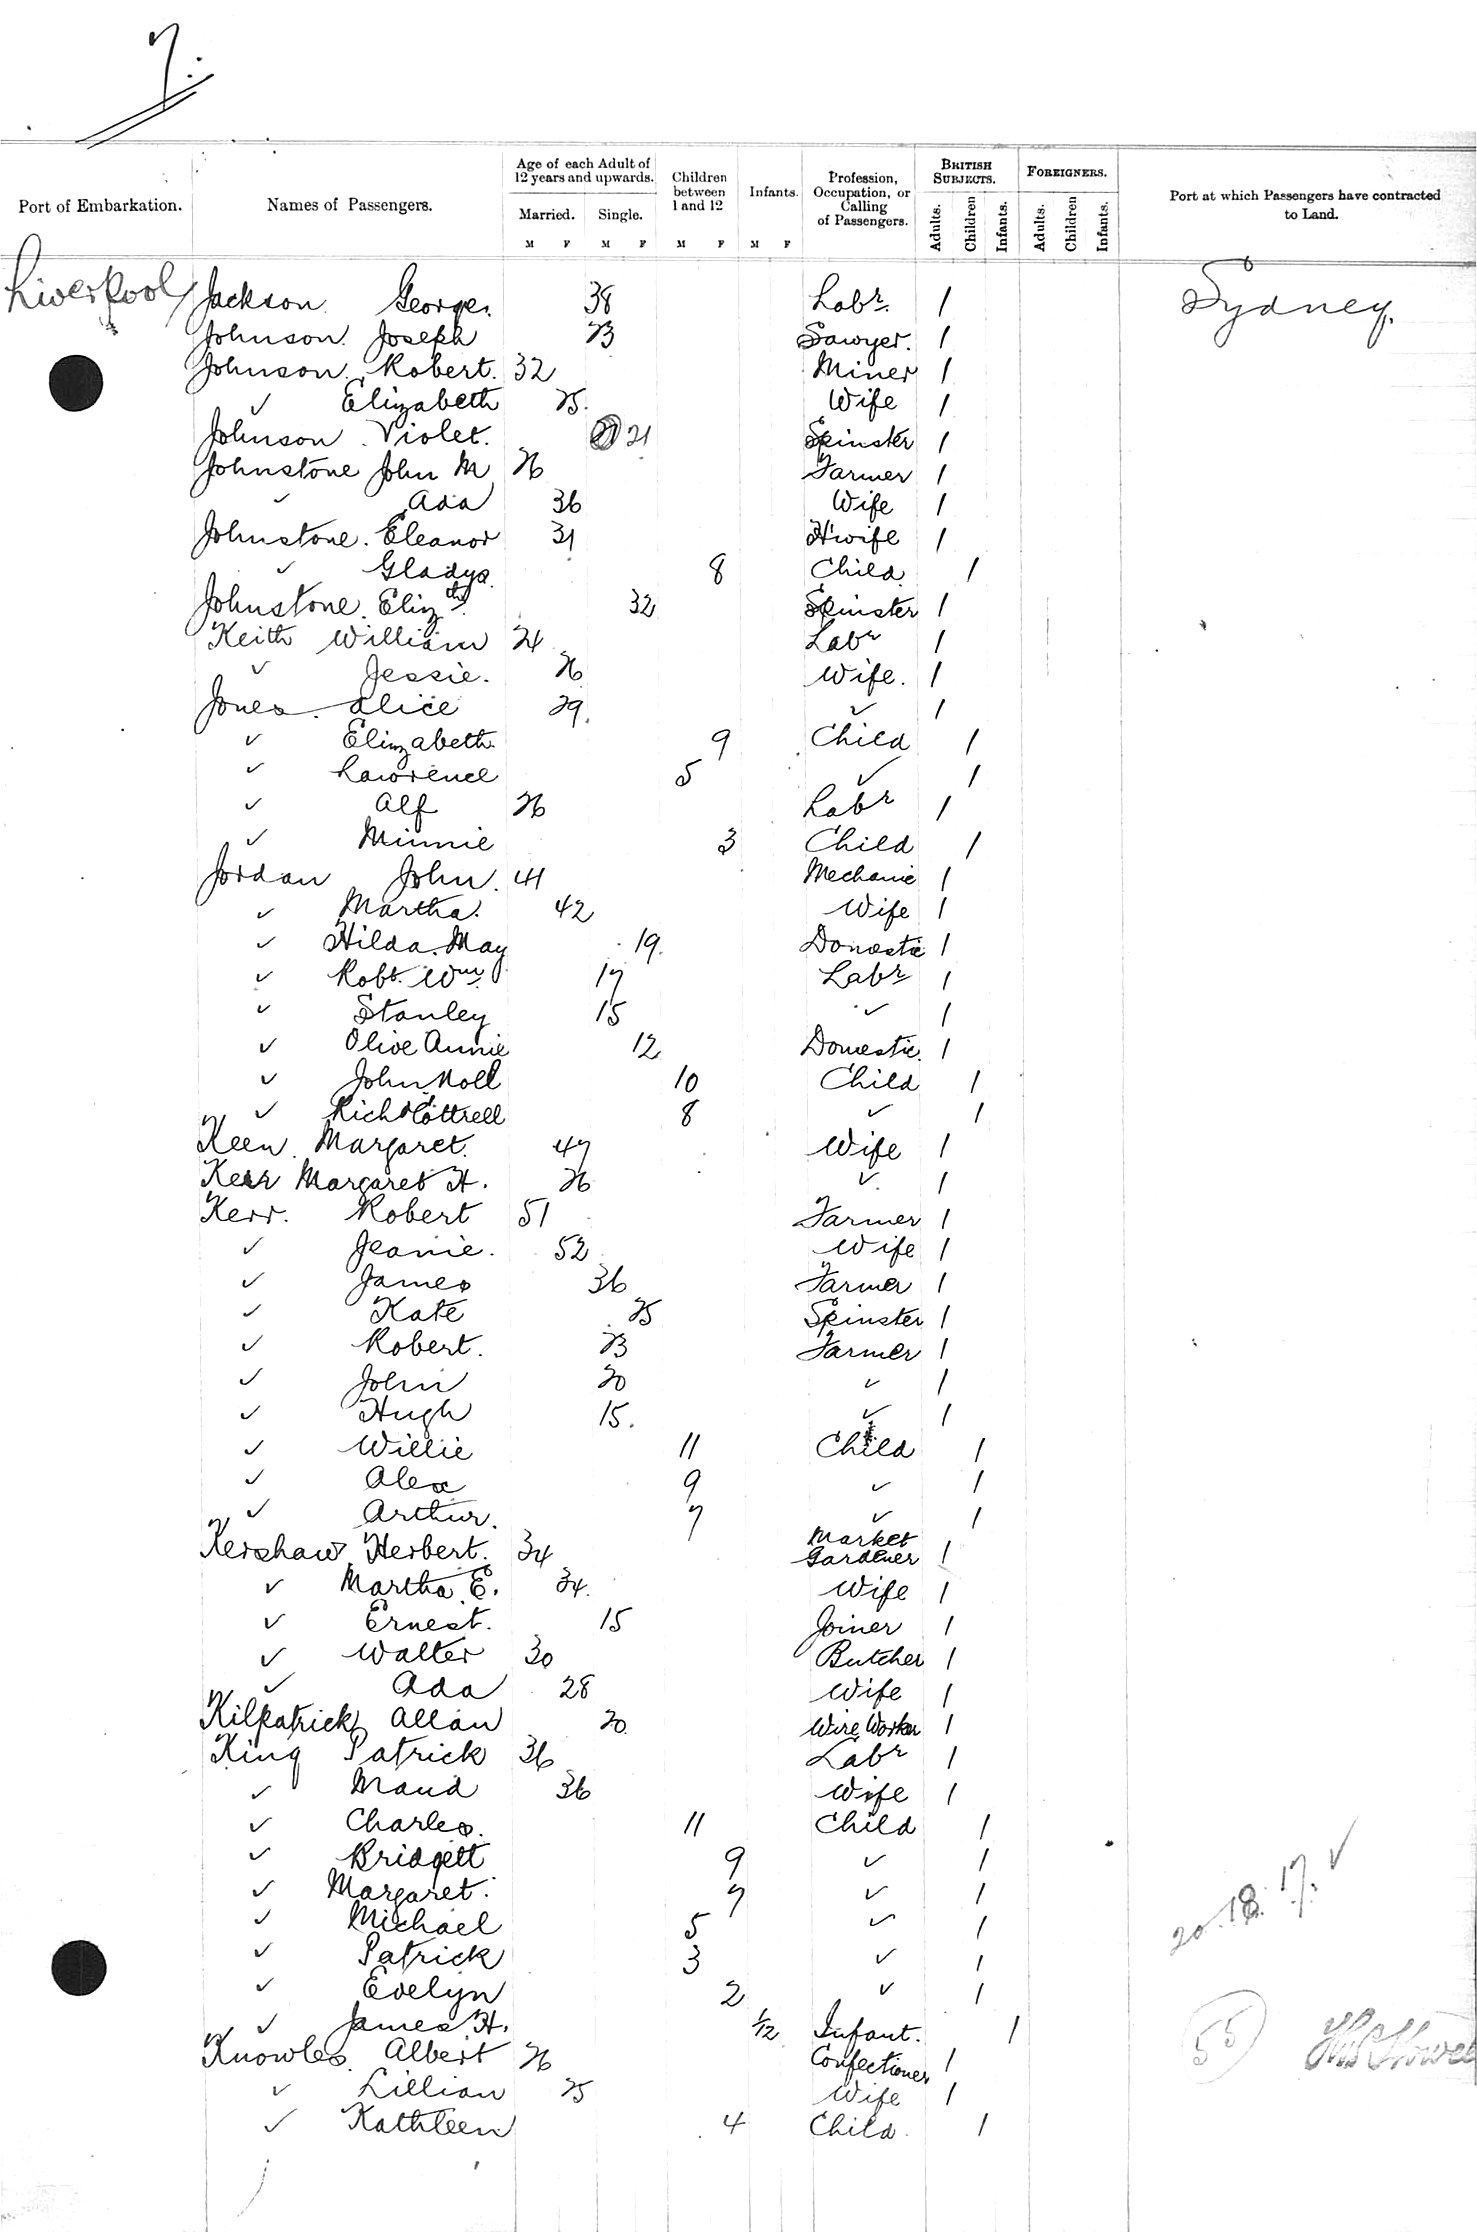 7.
Port of Embarkation. Names of Passengers. Age of each Adult of 12 years and upwards. Married. Single. M F M F Children between 1 and 12 M F Infants. M F Profession, Occupation, or Calling of Passengers. BRITISH SUBJECTS. Adults. Children Infants. FOREIGNERS. Adults. Children Infants. Port at which Passengers have contracted to Land.
Liverpool Jackson George. 38 Labr. 1 Sydney.
Johnson. Joseph 23 Sawyer. 1
Johnson. Robert. 32 Miner 1
✓ Elizabeth 25. Wife 1
Johnson. Violet. 21 Spinster 1
Johnstone John M 26 Farmer 1
✓ Ada 36 Wife 1
Johnstone. Eleanor 31 H'wife 1
✓ Gladys. 8 Child. 1
Johnstone. Elizth. 32 Spinster 1
Keith William 24 Labr 1
✓ Jessie. 26 Wife. 1
Jones. Alice 29. ✓ 1
✓ Elizabeth. 9 Child 1
✓ Lawrence 5 ✓ 1
✓ Alf 26 Labr 1
✓ Minnie 3 Child 1
Jordan John. 41 Mechanic 1
✓ Martha. 42 Wife 1
✓ Hilda. May 19. Domestic 1
✓ Robt. Wm. 17 Labr 1
✓ Stanley 15 ✓ 1
✓ Olive Annie 12 Domestic. 1
✓ John Noel 10 Child 1
✓ Richd Cottrell 8 ✓ 1
Keen. Margaret. 47 Wife 1
Kerr Margaret H. 26 ✓ 1
Kerr. Robert 51 Farmer 1
✓ Jeanie. 52 Wife 1
✓ James 36 Farmer 1
✓ Kate 25 Spinster 1
✓ Robert. 23 Farmer 1
✓ John 20 ✓ 1
✓ Hugh 15. ✓ 1
✓ Willie 11 Child 1
✓ Alex 9 ✓ 1
✓ Arthur. 7 ✓ 1
Kershaw Herbert. 34 Market Gardener 1
✓ Martha E. 34. Wife 1
✓ Ernest. 15 Joiner 1
✓ Walter 30 Butcher 1
✓ Ada 28 Wife 1
Kilpatrick Allan 20. Wire Worker 1
King Patrick 36 Labr 1
✓ Maud 36 Wife 1
✓ Charles. 11 Child 1
✓ Bridgett 9 ✓ 1
✓ Margaret. 7 ✓ 1
✓ Michael 5 ✓ 1
✓ Patrick 3 ✓ 1
✓ Evelyn 2 ✓ 1
✓ James H. 1/12 Infant. 1
Knowles. Albert 26 Confectioner 1
✓ Lillian 25 Wife 1
✓ Kathleen 4 Child. 1
20. 18. 17. ✓
55